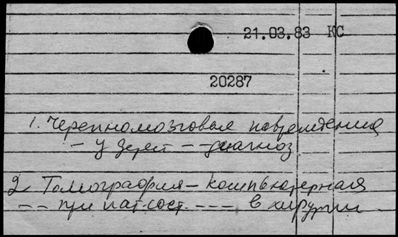 21.03.83 КС
20287
1. Черепномозговые повреждения
- у детей - - диагноз
2. Томография - компьютерная
- - при пат. сост. - - - - в хирургии